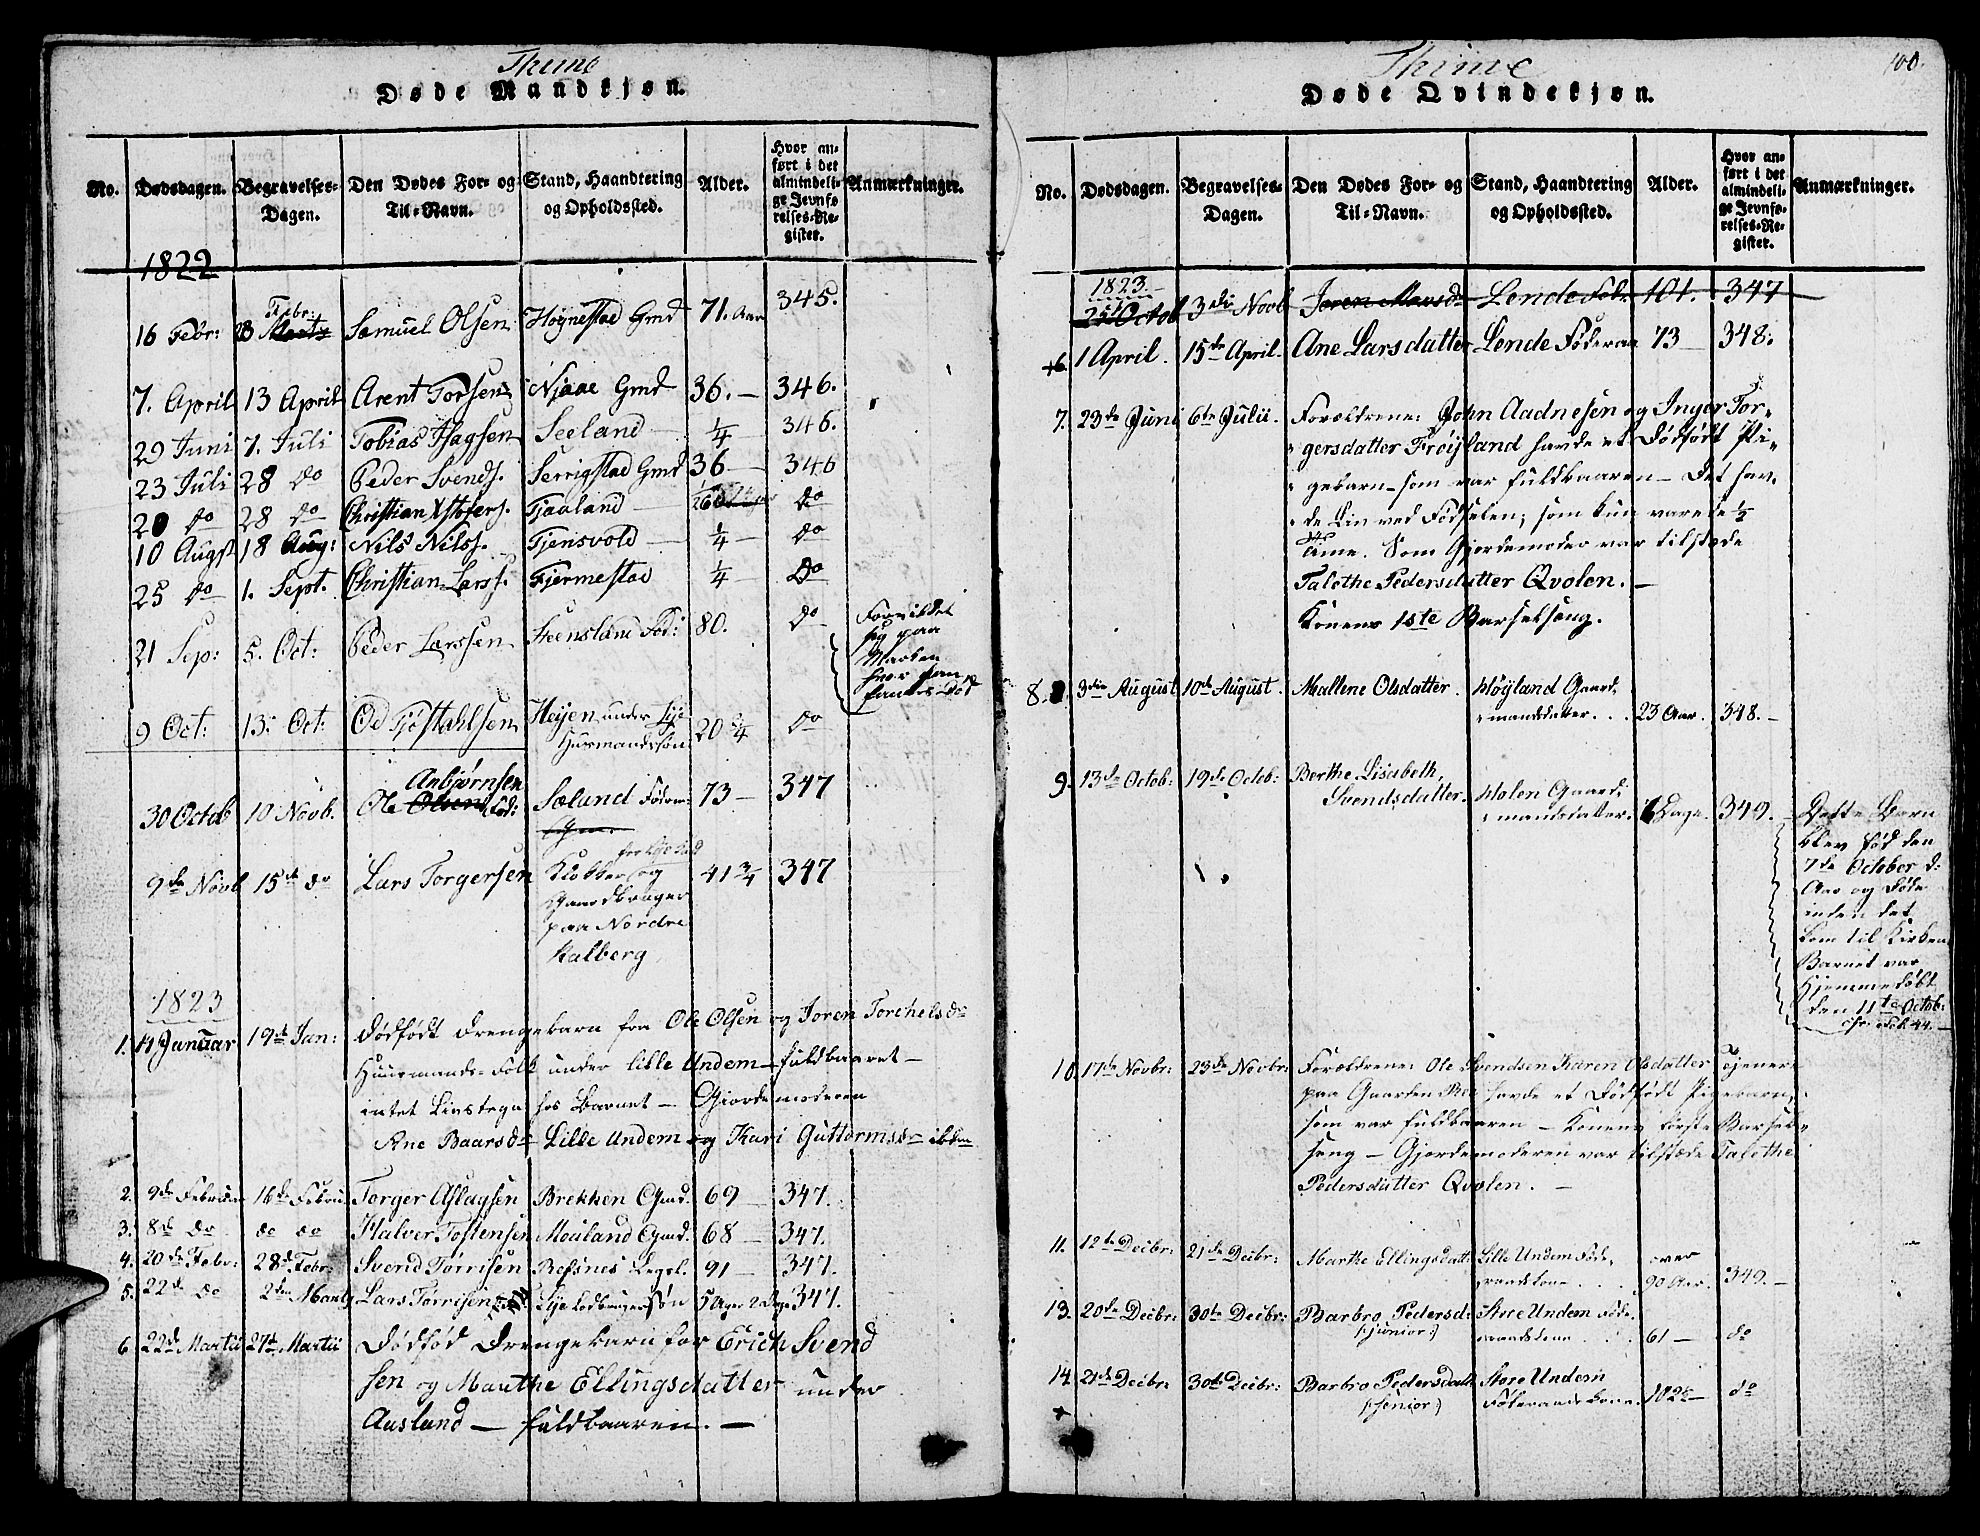 Thime
Døde Mandkjøn.
No.
Dødsdagen.
Begravelses-Dagen.
Den Dødes For- og Til-Navn.
Stand, Haandtering og Opholdssted.
Alder.
Hvor anført i det almindelige Jevnførelses-Register.
Anmærkninger.
1822
16 Febr: 23 Febr: Samuel Olsen Høgnestad Gmd 71. Aar 345.
7. April 13 April Arent Torsen Njaae Gmd 36. — 346.
29 Juni 7. Juli Tobias Isagsen Seeland — 1/4 346.
23 Juli 28 do Peder Svends. Serrigstad Gmd 36 — 346
20 do 28 do Christian Xstophers. Fjaaland — do
10 Augst 18 Aug: Nils Nilss. Tjensvold — 1/4 — do
25 do 1. Sept. Christian Larss. Fjermestad 1/4 — do
21 Sep: 5. Oct: Peder Larssen Steensland Fød: 80. do
Forvildet
sig paa
Marken
hvor han
fandtes død
9 Oct: 13: Oct: Od Tjøstahlsen Heijen under Lye 20 3/4 do
Huusmandssøn
Anbjørnsen
30 Octob 10 Novb. Ole Olsen Sælund Føderm: 73 — 347
for Lye
9de Novb 15de do Lars Torgersen Klokker og 41 3/4 347
Gaardbruger
paa Nordre
Kalberg
1823
1. 11 Januar 19de Jan: Dødfødt Drengebarn fra Ole Olsen og Joren Torchelsdr
Huusmands-Folk under lille Undem — fuldbaaret —
intet Livstegn hos Barnet — Gjordemoderen
Ane Baarsdr Lille Undem og Kari Guttormsdr ibdm
2. 9de Februar 16de Februar Torger Aslagsen Brekken Gmd. 69 — 347.
3. 8de do do do Halvor Tostensen Mouland Gmd. 68 — 347.
4. 20de Febr: 28de Febr: Svend Tørrisen Refsnes Legsl. 91 — 347.
5. 22de do 2den Martz Lars Tørrisen Lye Lodbrugersøn 5 Uger 2 Dage 347.
6 22de Martii 27de Martii Dødfød Drengebarn for Erich Svend
sen og Marthe Ellingsdatter under
Ausland — fuldbaaren. —
Thime
100.
Døde Qvindekjøn.
No.
Dødsdagen.
Begravelses-Dagen.
Den Dødes For- og Til-Navn.
Stand, Haandtering og Opholdssted.
Alder.
Hvor anført i det almindelige Jevnførelses-Register.
Anmærkninger.
1823.
25 Octob 3die Novb Joren Lende Fød. 101. 347
6. 1 April. 15de April. Ane Larsdatter Lende Føderaa 73 — 348.
7. 23de Juni 6te Julii. Forældrene: John Aadnesen og Inger Tor-
gersdatter Frøyland havde et Dødfødt Pi-
gebarn — som var fuldbaaren — Det hav-
de Liv ved Fødselen, som kun varede 1/2
Time. Som Gjordemoder var tilstede
Talethe Pedersdatter Qvolen. —
Konens 1ste Barselseng.
8. 3die August 10de August. Mallene Olsdatter. Høyland Gaard-
mandsdatter . . . 23 Aar. 348. —
9. 13de Octob: 19de Octob: Berthe Lisabeth,
Svendsdatter. Holen Gaard-
mandsdatter. 6 Dage. 349. —
Dette Barn
blev fød den
7de October d:
Aar og døde
inden det
kom til Kirken
Barnet var
hjemmedøbt
den 11te Octob:
cfr. Fol. 44. —
10. 17de Novbr: 23de Novbr: Forældrene: Ole Svendsen Karen Olsdatter Tjener
paa Gaarden Re havde et Dødfødt Pigebarn,
som var fuldbaaren — Konens første Barsel-
seng — Gjordemoderen var tilstede Talethe
Pedersdatter Qvolen. —
11. 12te Decbr: 21de Decbr: Marthe Ellingsdatt Lille Undem Føde- over
raadskone . . . 90 Aar. 349. —
13. 20de Decbr: 30te Decbr: Barbro Pedersd. Store Undem Føde-
(:junior:) raadskone . . . 61 — do
14. 21de Decbr: 30te Decbr: Barbro Pedersdatt Store Undem
(:senior:) Føderaadskone. 102 — do